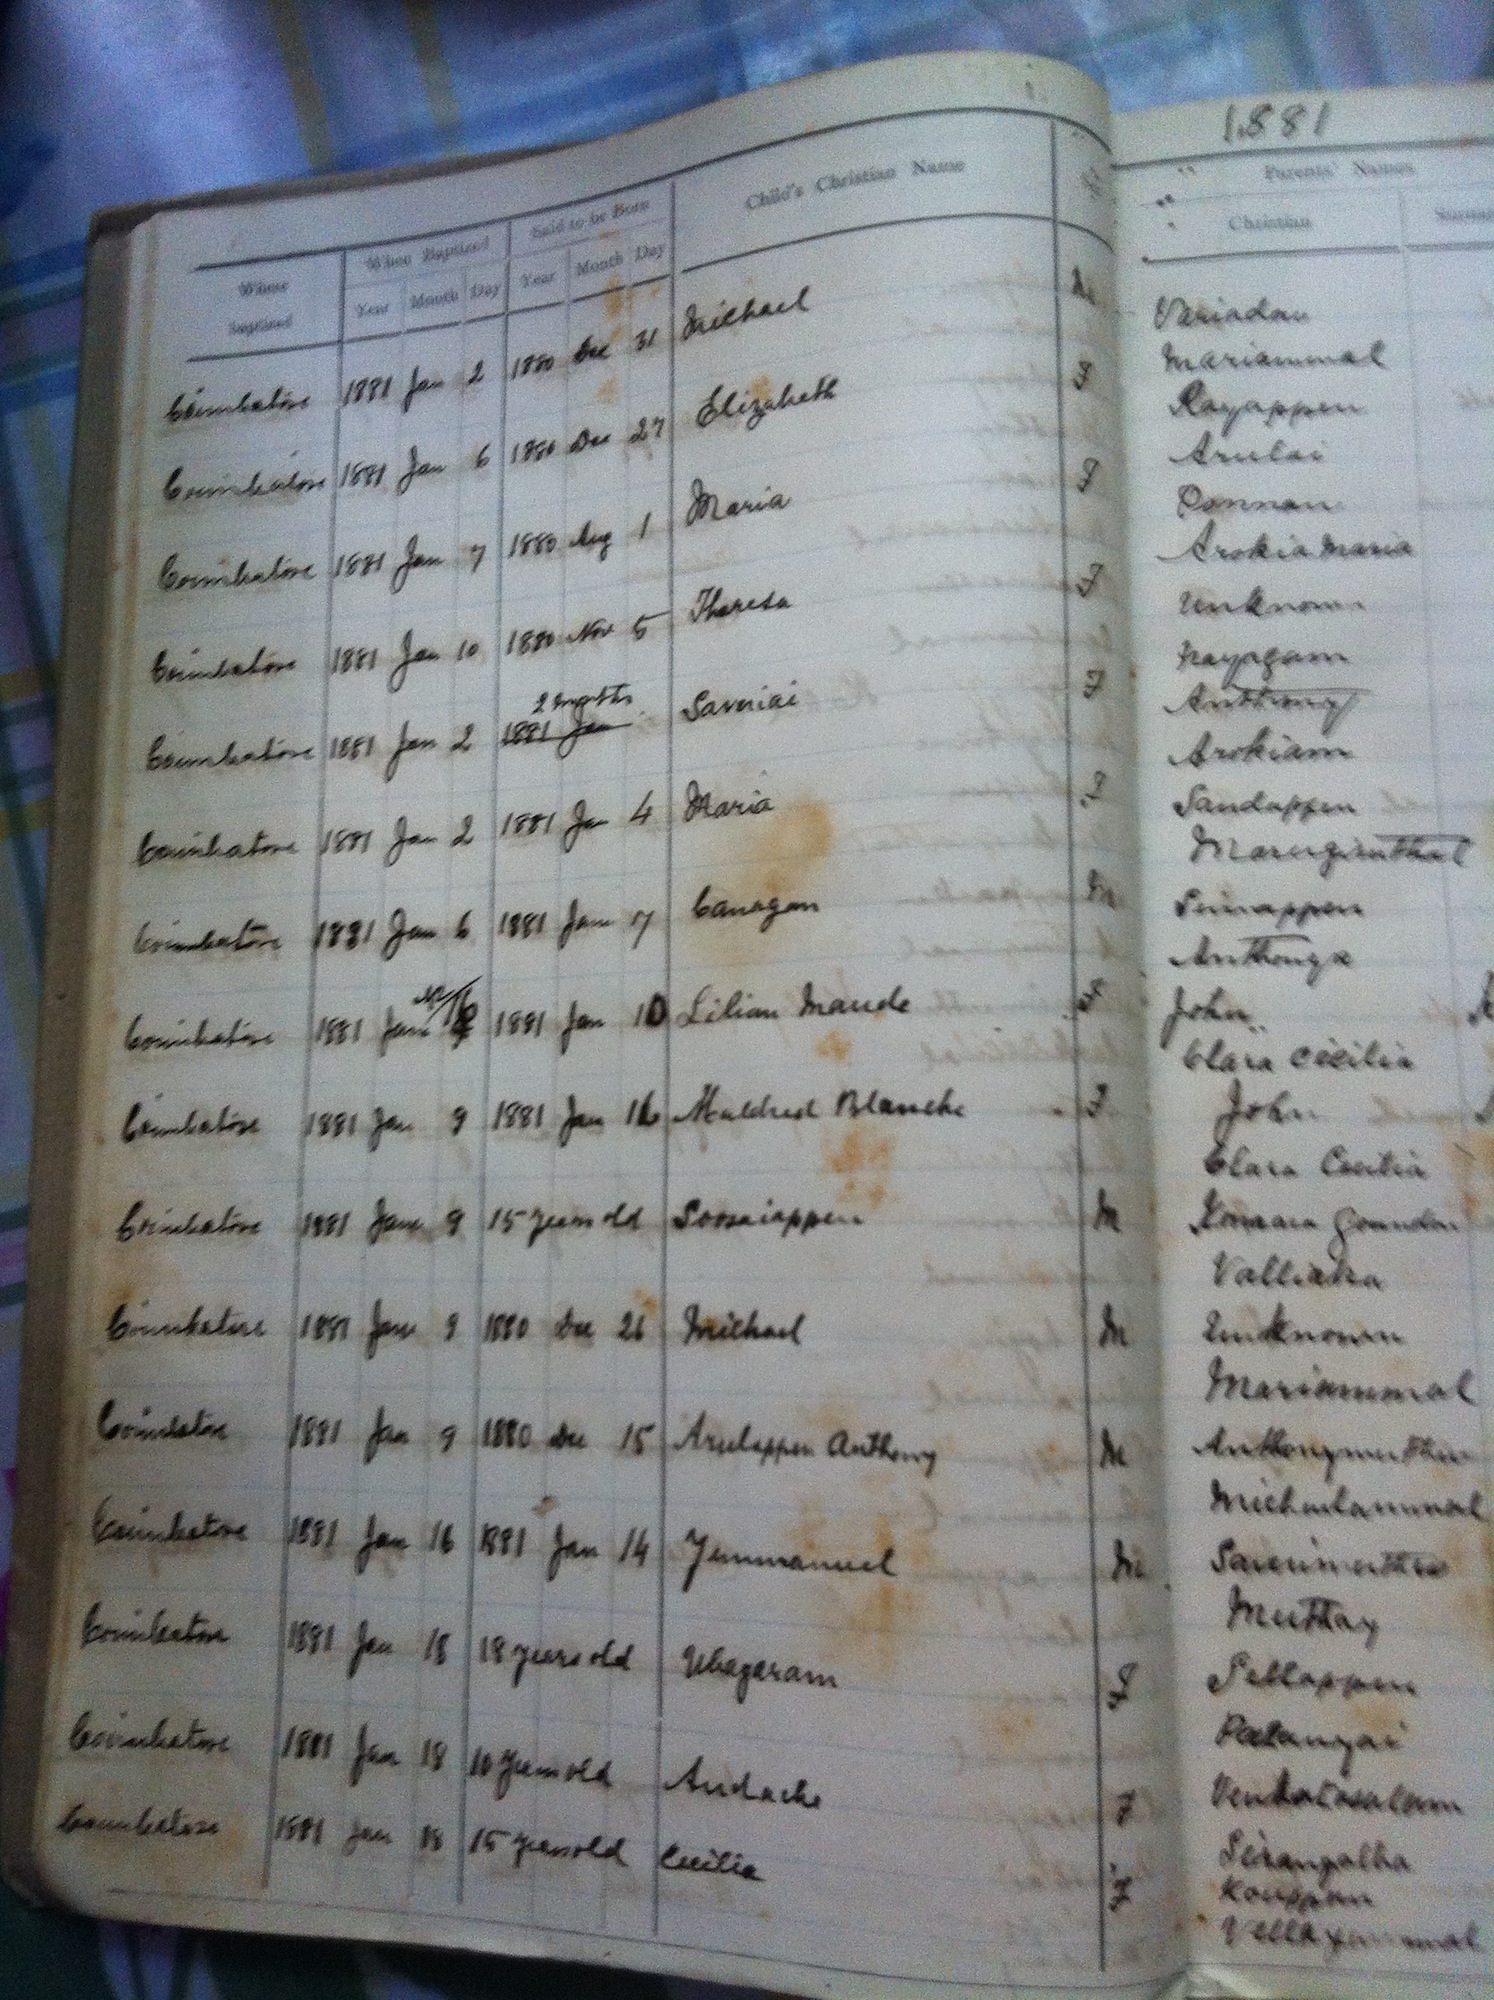 1881
Where Baptized When Baptized Said to be Born Child's Christian Name
Year Month Day Year Month Day
Parents' Names
Christian
Coimbatore 1881 Jan 2 1880 Dec 31 Michael M
Coimbatore 1881 Jan 6 1880 Dec 27 Elizabeth F
Coimbatore 1881 Jan 7 1880 Aug 1 Maria F
Coimbatore 1881 Jan 10 1880 Nov 5 Theresa F
2 months
Coimbatore 1881 Jan 2 1881 Jan Saveriai F
Coimbatore 1881 Jan 2 1881 Jan 4 Maria F
Coimbatore 1881 Jan 6 1881 Jan 7 Canagan M
Coimbatore 1881 Jan 16 1881 Jan 10 Lilian Maude F
Coimbatore 1881 Jan 9 1881 Jan 16 Muldred Blanche F
Coimbatore 1881 Jan 9 15 years old Soosaiappen M
Coimbatore 1881 Jan 9 1880 Dec 26 Michael M
Coimbatore 1881 Jan 9 1880 Dec 15 Arulappen Anthony M
Coimbatore 1881 Jan 16 1881 Jan 14 Yemmanuel M
Coimbatore 1881 Jan 18 18 years old Ubagaram F
Coimbatore 1881 Jan 18 10 years old F
Coimbatore 1881 Jan 18 15 years old Cecilia F
Variadan
Mariammal
Rayappen
Arulai
Ponnan
Arokia Maria
Unknown
Nayagam
Anthony
Arokiam
Sandappen
Sinnappen
John
Clara Cecilia
John
Clara Cecilia
Unknown
Mariammal
Anthonymuthu
Michaelammal
Saverimuthu
Muttay
Sellappen
Venkatasalam